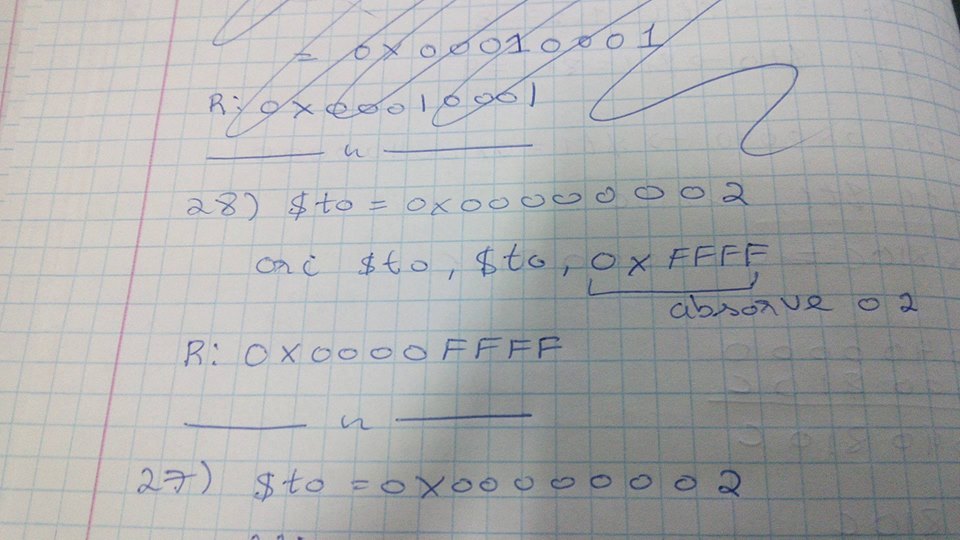 = 0x00010001
R: 0x00010001
n
28) $t0 = 0x00000002
ori $t0, $t0, 0xFFFF
absorve o 2
R: 0x0000FFFF
n
27) $t0 = 0x00000002